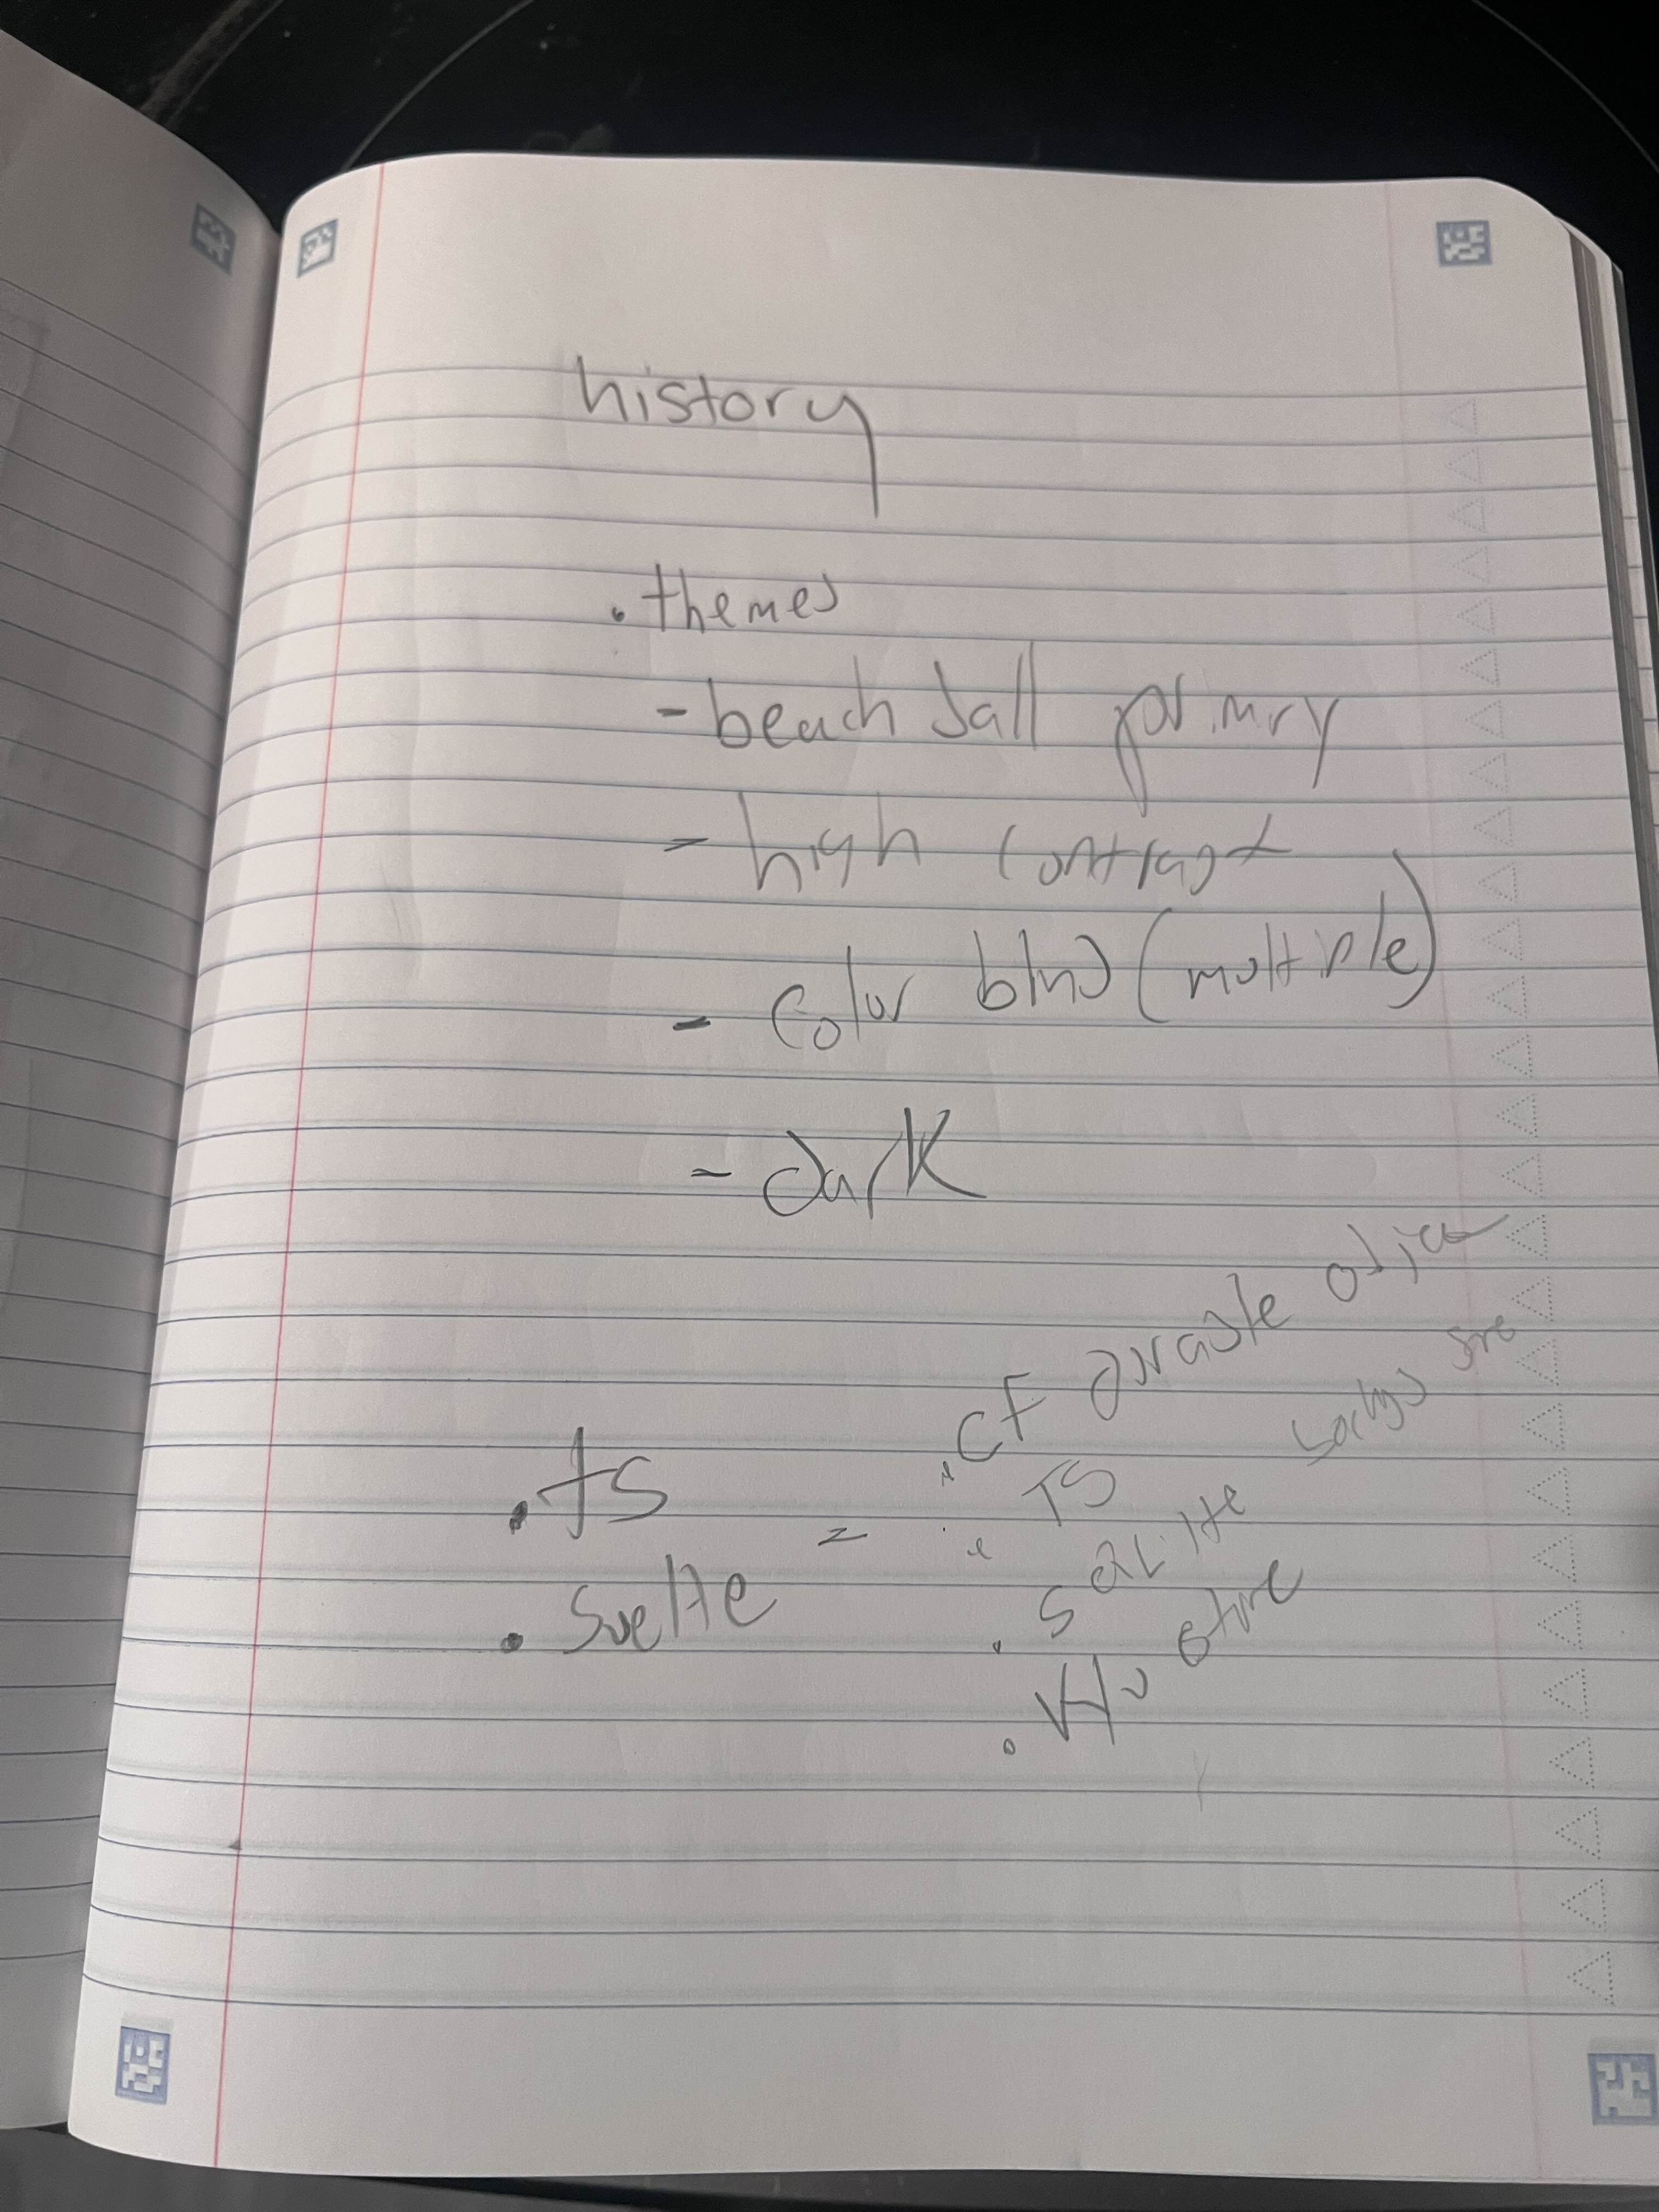 history
. themes
- beach ball primry
- high contrast
- color blind (multiple)
- dark
. CF durable object
. TS
. TS
. svelte
. sqlite
. store